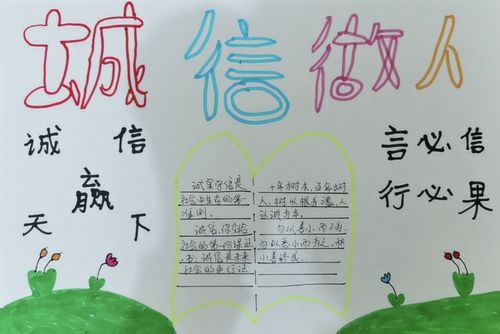 诚信做人
诚 信
赢
天 下
诚实守信是
社会中生存的第一
准则。
诚信,你交给
社会的第一份保证
书,诚信是未来
社会的通行证
十年树木,百年树
人,树以根为魂,人
以诚为本。
勿以善小而不为,
勿以恶小而为之,积
小善
言必信
行必果